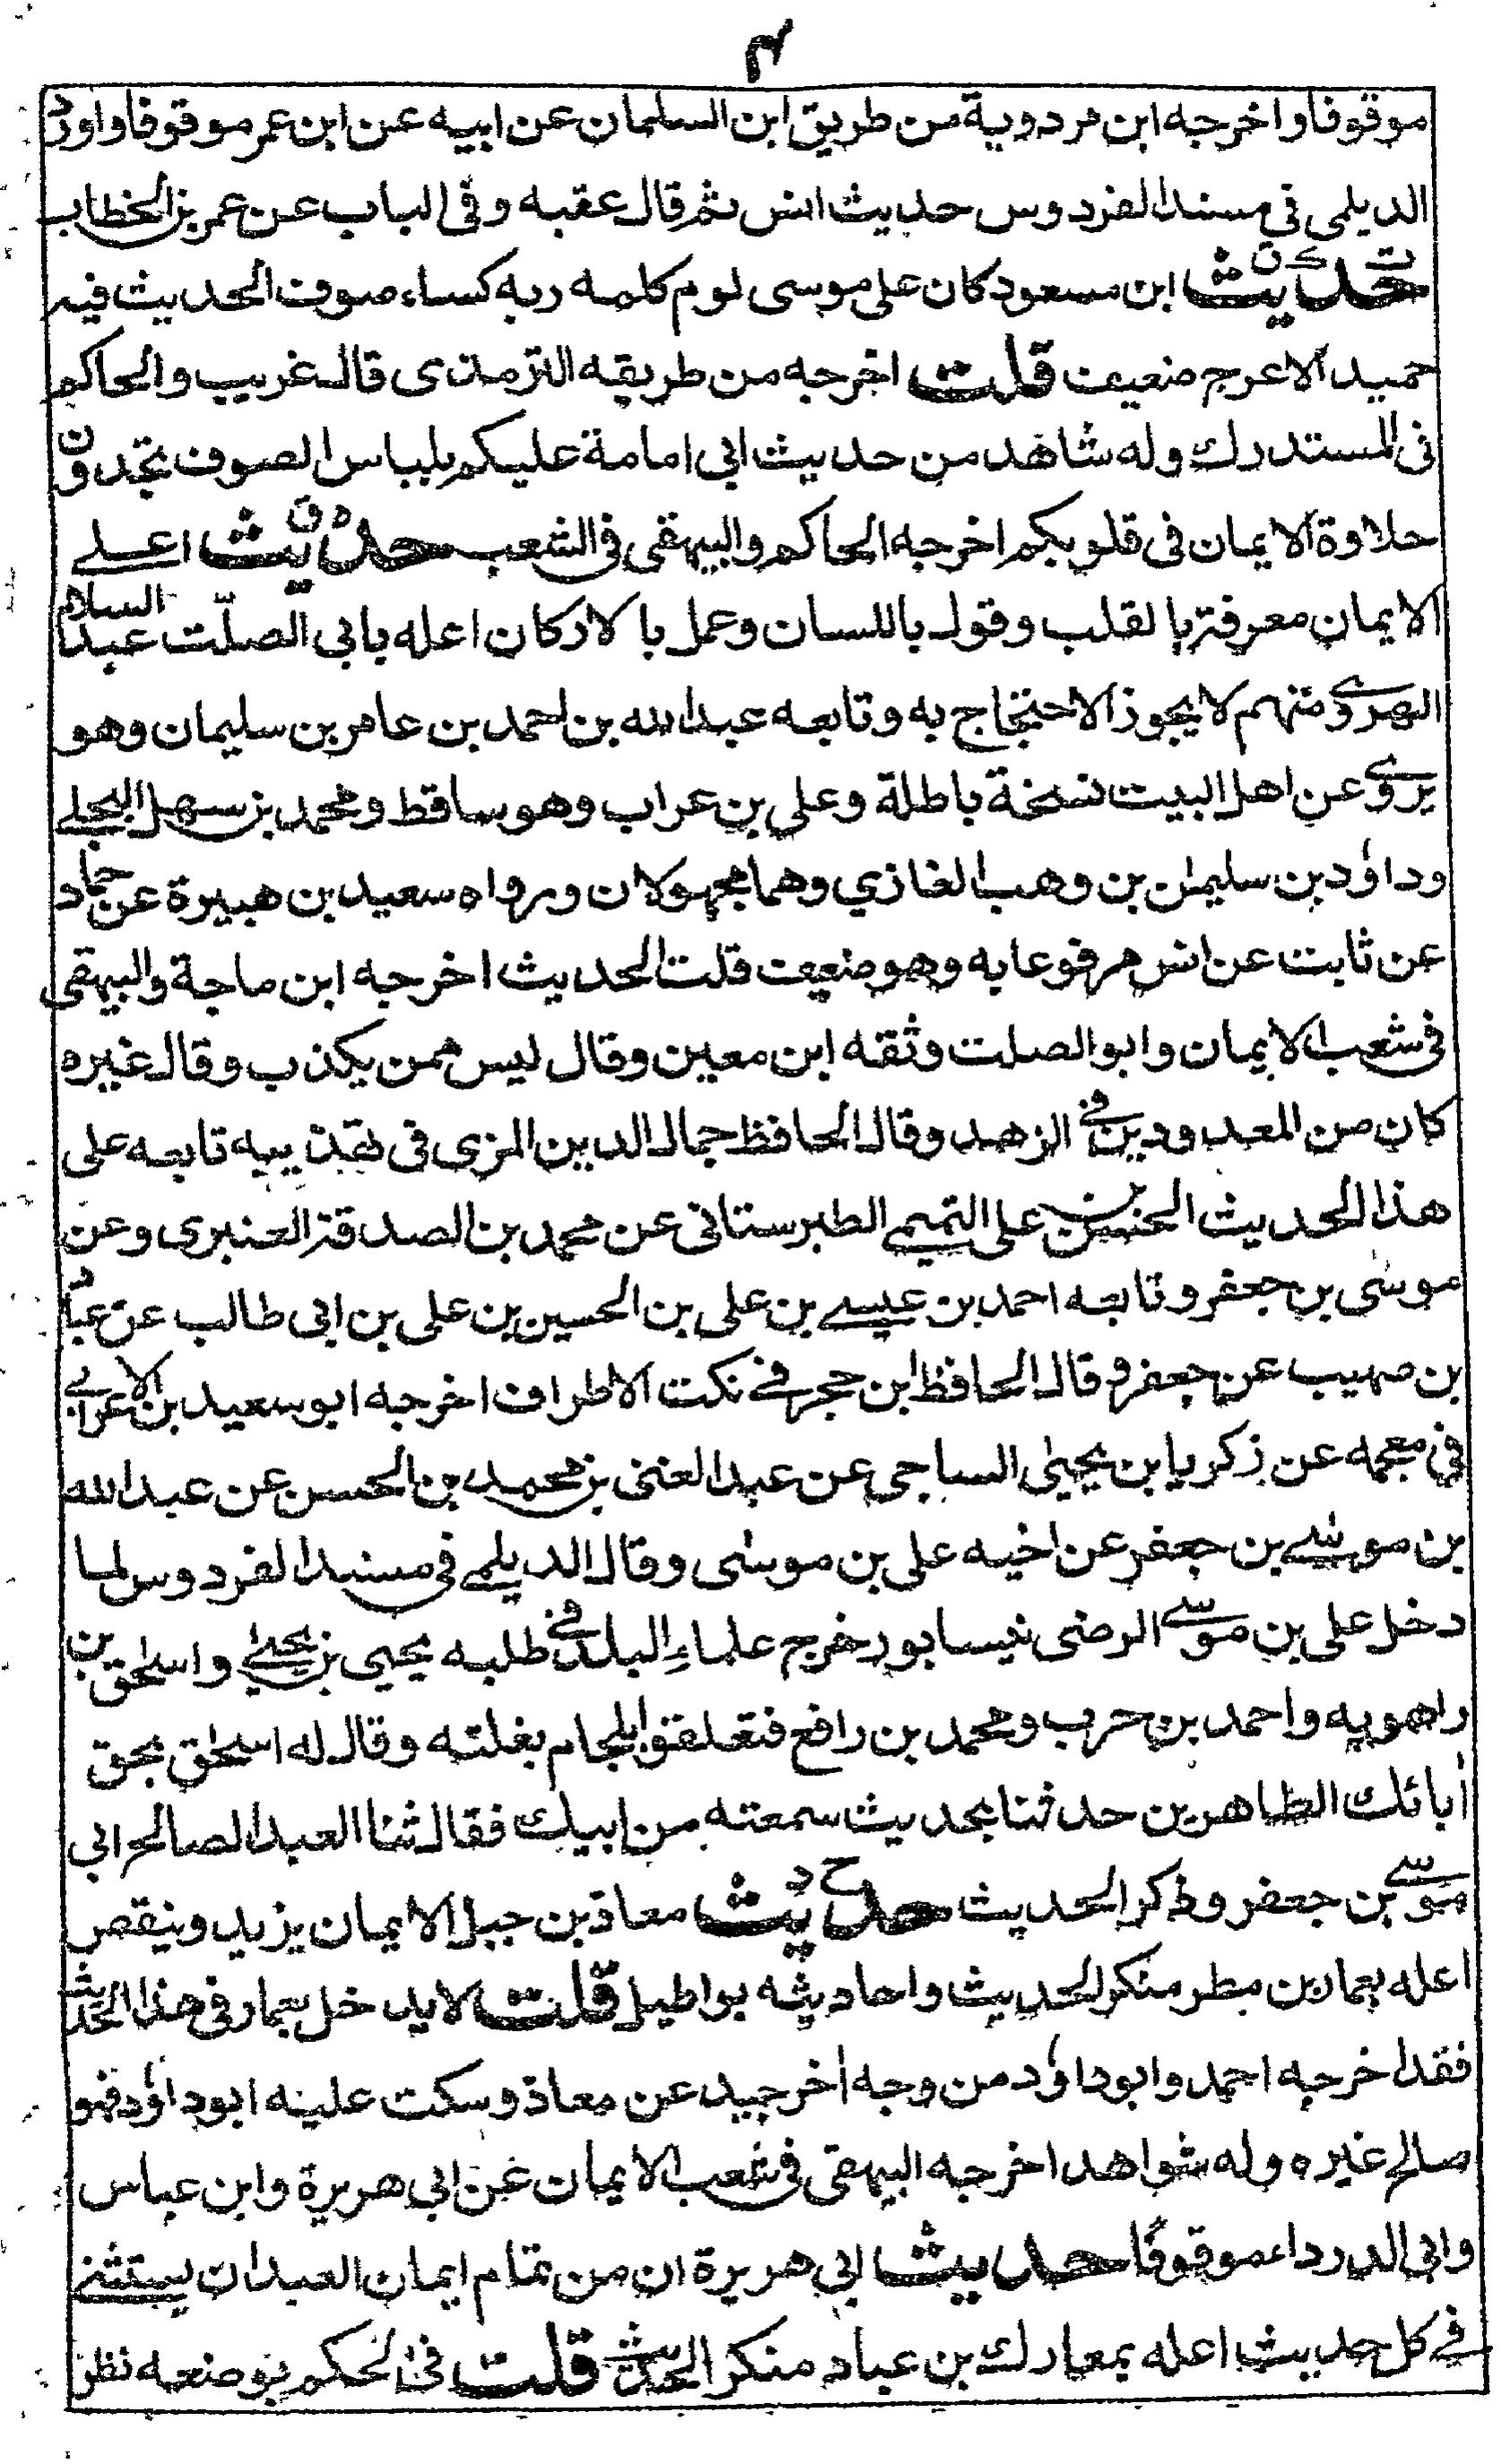 ٣
موقوفا واخرجه ابن مردوية من طريق ابن السلمان عن ابيه عن ابن عمر موقوفا واورد
الديلمى فى مسند الفردوس حديث انس ثم قال عقبه وفى الباب عن عمر بن الخطاب
حديث ابن مسعود كان على موسى لوم كلمه ربه كساء صوف الحديث فيه
حميد الاعرج ضعيف قلت اخرجه من طريقه الترمذى قال غريب والحاكم
فى المستدرك وله شاهد من حديث ابى امامة عليكم بلباس الصوف تجدون
حلاوة الايمان فى قلوبكم اخرجه الحاكم والبيهقى فى الشعب حديث اعلے
الايمان معرفة بالقلب وقول باللسان وعمل بالاركان اعله بابى الصلت عبد السلام
الهروى متهم لا يجوز الاحتجاج به وتابعه عبد الله بن احمد بن عامر بن سليمان وهو
يروى عن اهل البيت نسخة باطلة وعلي بن عراب وهو ساقط ومحمد بن سهل البجلے
وداؤد بن سليمان بن وهب الغازي وهما مجهولان ورواه سعيد بن هبيرة عن حماد
عن ثابت عن انس مرفوعا به وهو ضعيف قلت الحديث اخرجه ابن ماجة والبيهقى
فى شعب الايمان وابو الصلت وثقه ابن معين وقال ليس ممن يكذب وقال غيره
كان من المعدودين فى الزهد وقال الحافظ جمال الدين المزى فى تهذيبه تابعه على
هذا الحديث الحسن بن على التميمے الطبرستانى عن محمد بن الصدقة العنبرى وعن
موسى بن جعفر وتابعه احمد بن عيسے بن على بن الحسين بن على بن ابى طالب عن عباد
بن صهيب عن جعفر وقال الحافظ ابن حجر فے نكت الاطراف اخرجه ابو سعيد بن الاعرابے
في معجمه عن زكريا بن يحيىٰ الساجى عن عبد الغنى بن محمد بن الحسن عن عبد الله
بن موسے بن جعفر عن اخيه على بن موسى وقال الديلمے فى مسند الفردوس لما
دخل على بن موسے الرضى نيسابور خرج علماء البلد فے طلبه يحيى بن يحيے واسحٰق بن
راهويه واحمد بن حرب ومحمد بن رافع فتعلقوا بلجام بغلته وقال له اسحٰق بحق
اٰبائك الطاهرين حدثنا بحديث سمعته من ابيك فقال ثنا العبد الصالح ابى
موسے بن جعفر وذكر الحديث حديث معاذ بن جبل الايمان يزيد وينقص
اعله بعمار بن مطر منكر الحديث واحاديثه بواطيل قلت لا يدخل بعمار فى هذا الحديث
فقد اخرجه احمد وابو داؤد من وجه اٰخر جيد عن معاذ وسكت علينه ابو داؤد فهو
صالح غيره وله شواهد اخرجه البيهقى فى شعب الايمان عن ابى هريرة وابن عباس
وابى الدرداء موقوفا حديث ابى هريرة ان من تمام ايمان العبد ان يستثنے
فے كل حديث اعله بمعارك بن عباد منكر الحديث قلت فى الحكم بوضعه نظر